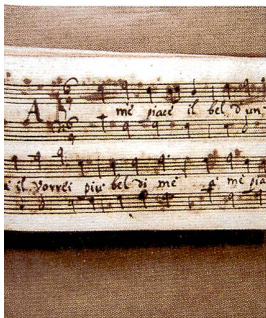 A me piace il bel d'un
il vorrei piu bel di me A me pia